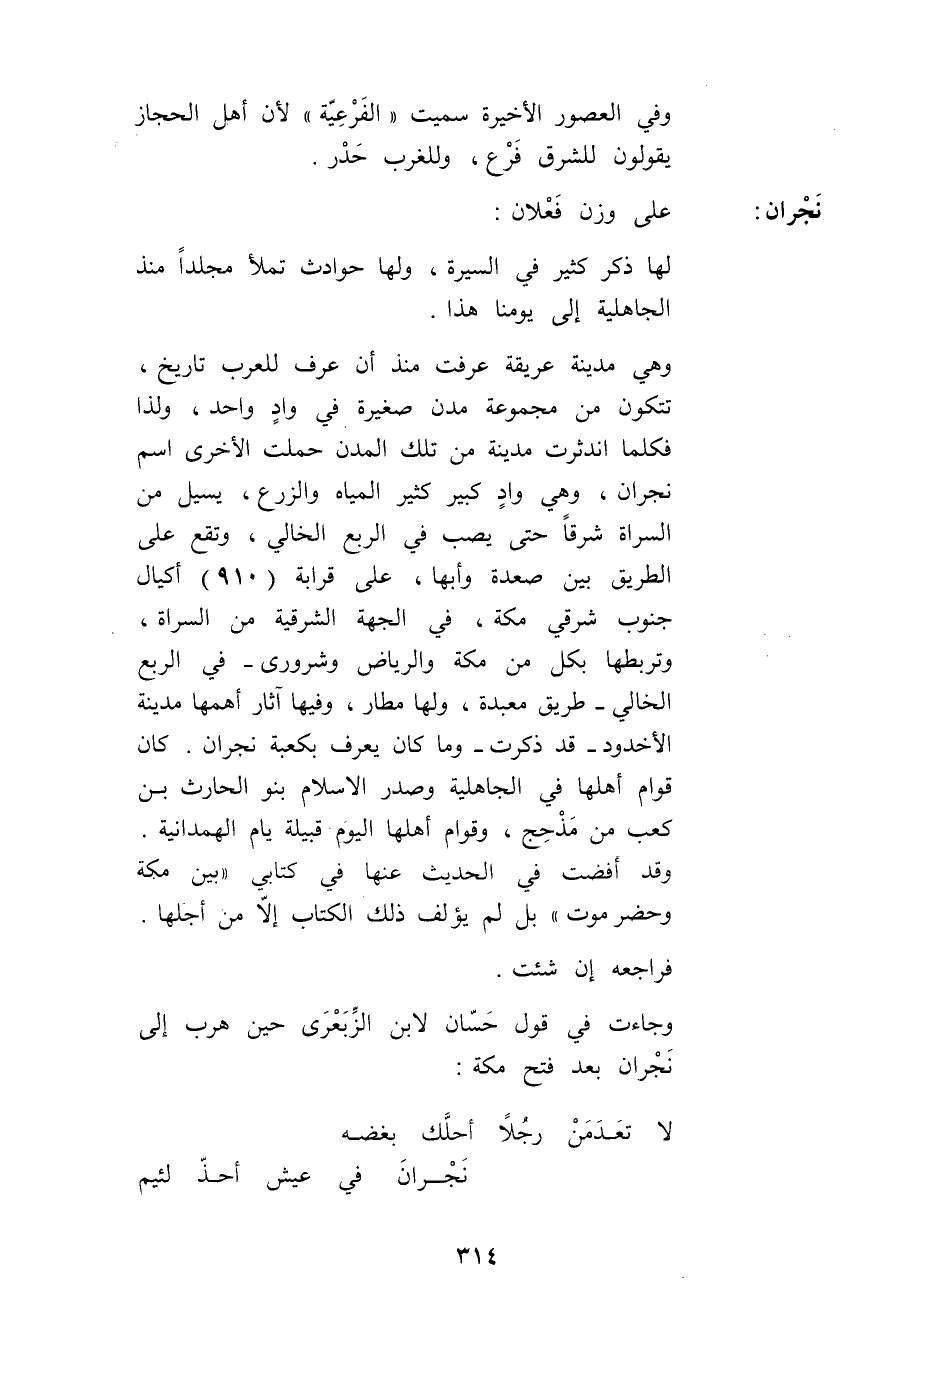 وفي العصور الأخيرة سميت « الفَرْعِيّة » لأن أهل الحجاز
يقولون للشرق فَرْع ، وللغرب حَدْر .
نَجْران : على وزن فَعْلان :
لها ذكر كثير في السيرة ، ولها حوادث تملأ مجلداً منذ
الجاهلية إلى يومنا هذا .
وهي مدينة عريقة عرفت منذ أن عرف للعرب تاريخ ،
تتكون من مجموعة مدن صغيرة في وادٍ واحد ، ولذا
فكلما اندثرت مدينة من تلك المدن حملت الأخرى اسم
نجران ، وهي وادٍ كبير كثير المياه والزرع ، يسيل من
السراة شرقاً حتى يصب في الربع الخالي ، وتقع على
الطريق بين صعدة وأبها ، على قرابة ( ٩١٠ ) أكيال
جنوب شرقي مكة ، في الجهة الشرقية من السراة ،
وتربطها بكل من مكة والرياض وشرورى - في الربع
الخالي - طريق معبدة ، ولها مطار ، وفيها آثار أهمها مدينة
الأخدود - قد ذكرت - وما كان يعرف بكعبة نجران . كان
قوام أهلها في الجاهلية وصدر الاسلام بنو الحارث بن
كعب من مَذْحِج ، وقوام أهلها اليوم قبيلة يام الهمدانية .
وقد أفضت في الحديث عنها في كتابي « بين مكة
وحضرموت » بل لم يؤلف ذلك الكتاب إلّا من أجلها .
فراجعه إن شئت .
وجاءت في قول حَسّان لابن الزِّبَعْرَى حين هرب إلى
نَجْران بعد فتح مكة :
لا تعَدَمَنْ رجُلاً أحلَّك بغضه
نَجْرانَ في عيش أحذّ لئيم
٣١٤